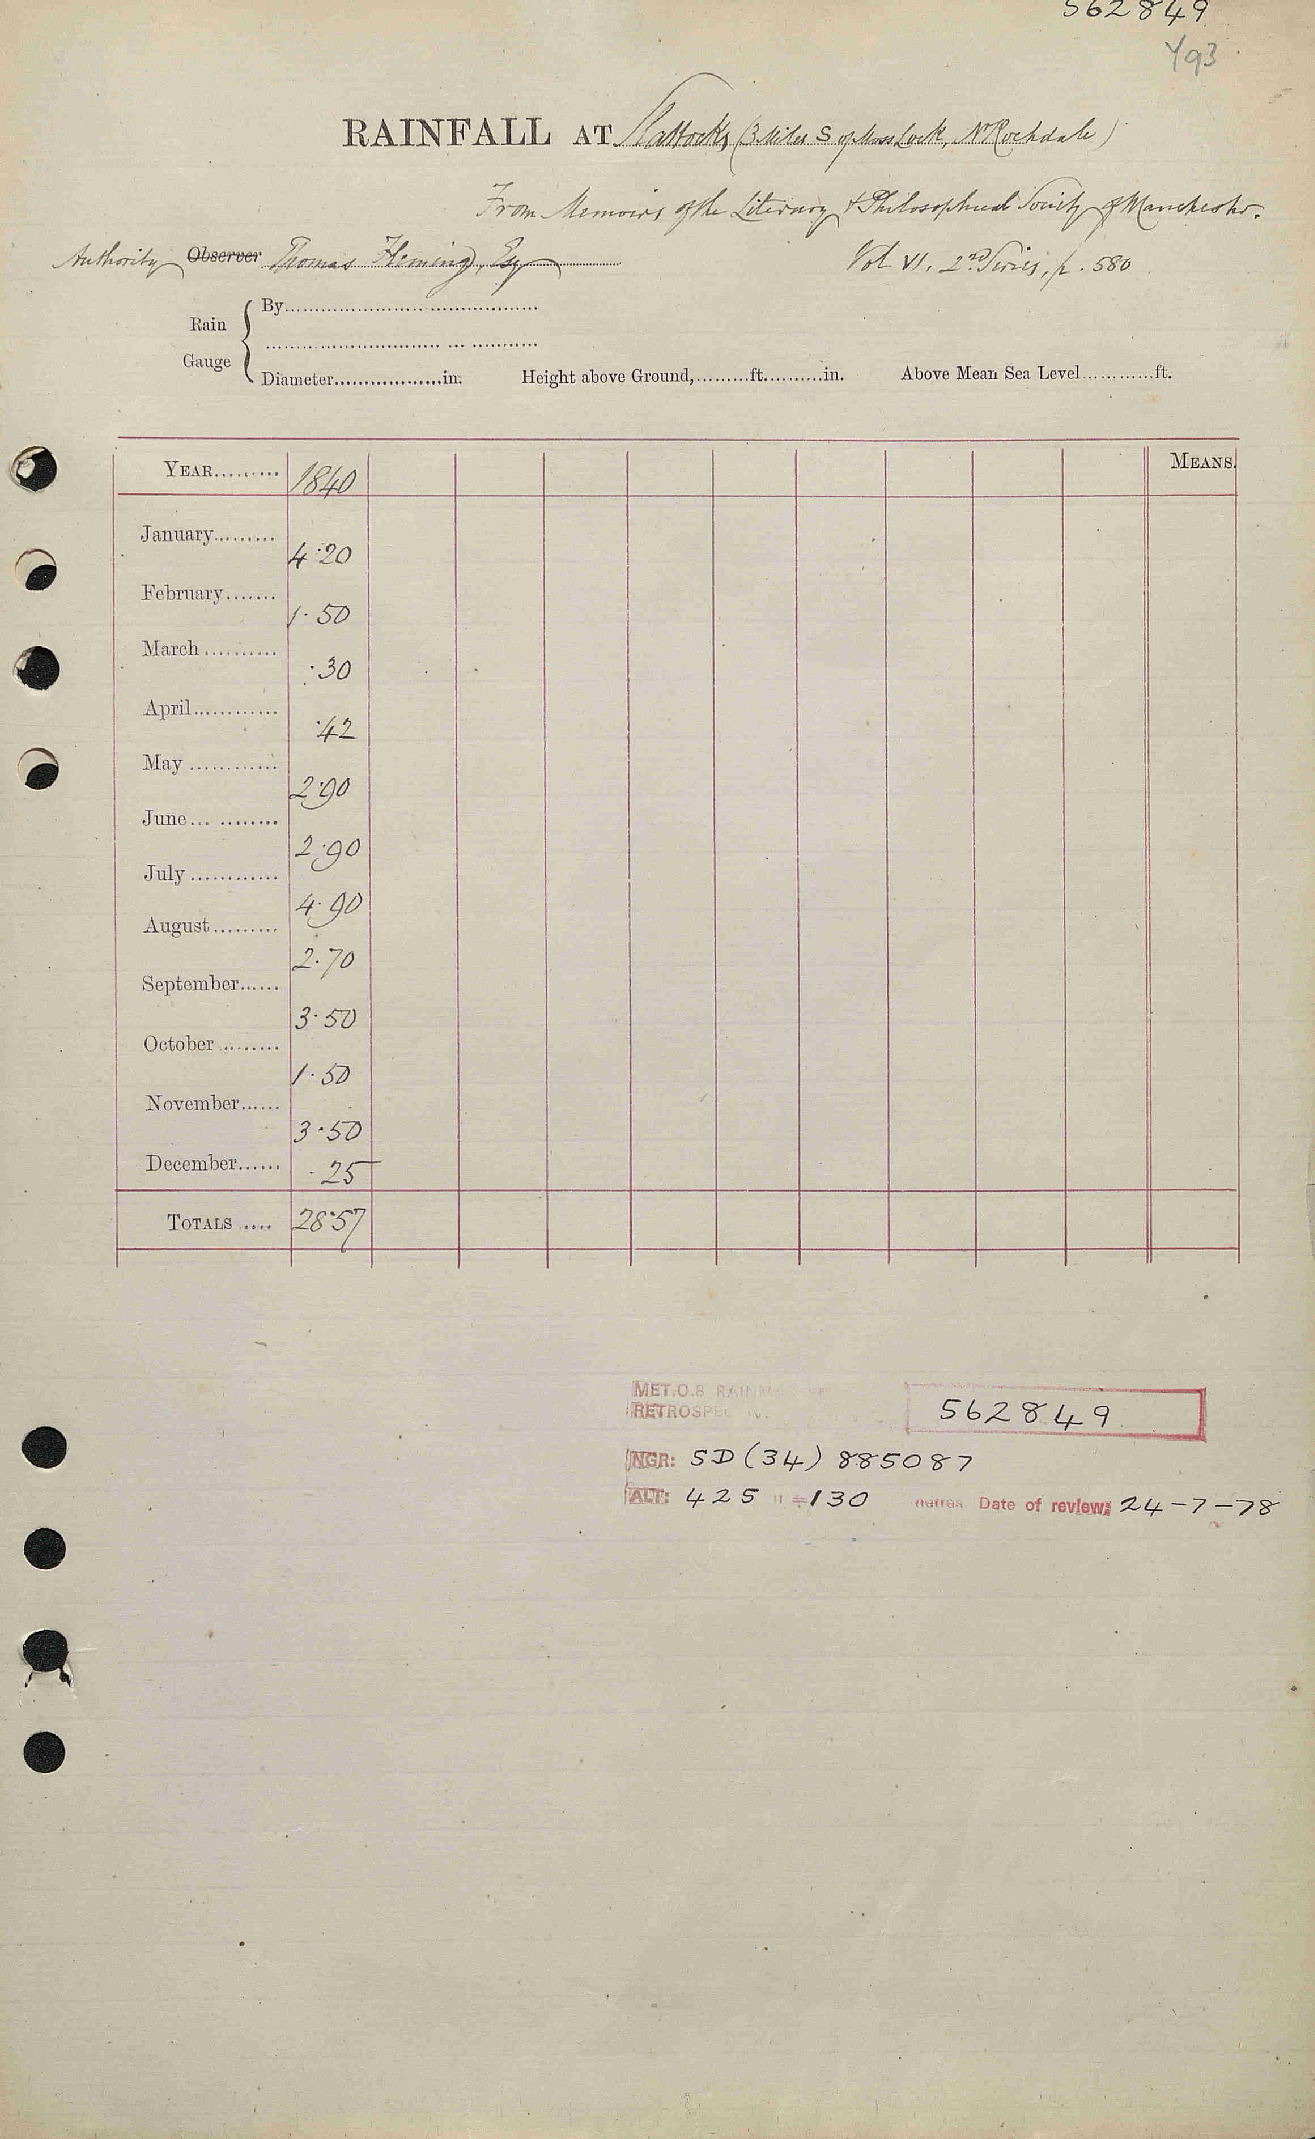 562849
Y93
RAINFALL AT Slattocks (3 Miles S of Moss Lock, Nr Rochdale)
From Memoirs of the Literary & Philosophical Society of Manchester.
Authority Observer Thomas Fleming, Esq Vol VI. 2nd Series, p. 580
Rain Gauge
By
Diameter in. Height above Ground, ft. in. Above Mean Sea Level ft.
YEAR 1840 MEANS.
January 4.20
February 1.50
March .30
April .42
May 2.90
June 2.90
July 4.90
August 2.70
September 3.50
October 1.50
November 3.50
December .25
TOTALS 28.57
MET.O.8
562849
NGR: SD (34) 885087
ALT: 425 130 metres Date of review: 24-7-78